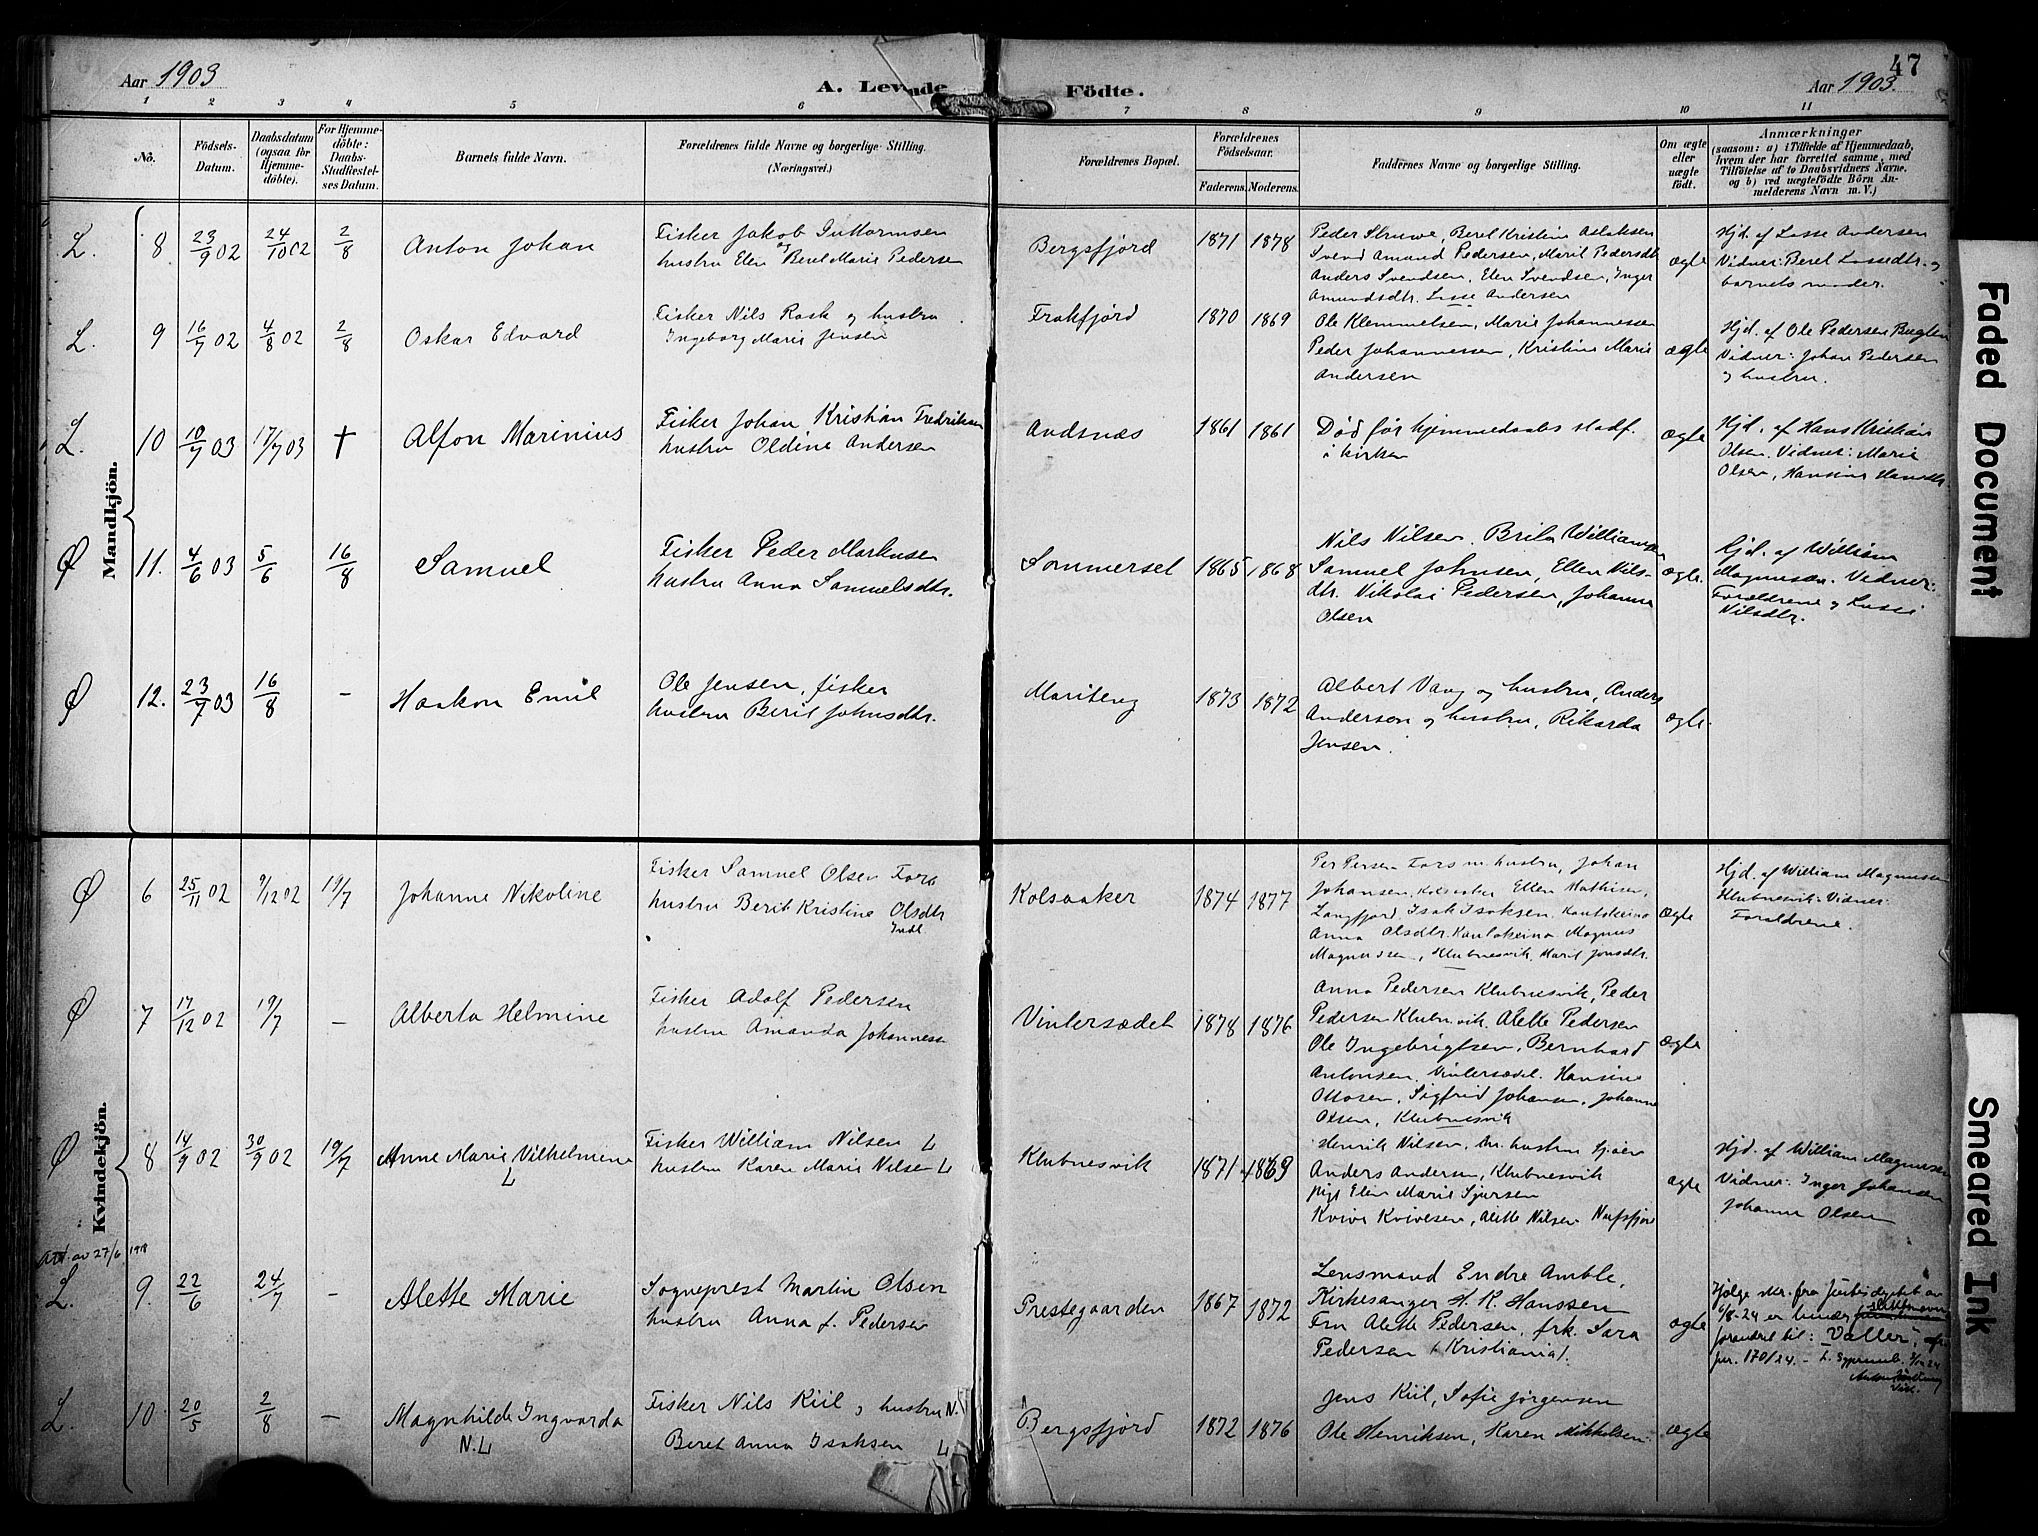 47
Aar 1903
A. Levende
Födte.
Aar 1903.
1 2 3 4 5 6 7 8 9 10 11
No.
Födsels-
Datum.
Daabsdatum
(ogsaa for
Hjemme-
döbte).
For Hjemme-
döbte:
Daabs-
Stadfæstel-
ses Datum.
Barnets fulde Navn.
Forældrenes fulde Navne og borgerlige Stilling.
(Næringsvei.)
Forældrenes Bopæl.
Forældrenes
Födselsaar.
Faderens. Moderens.
Faddernes Navne og borgerlige Stilling.
Om ægte
eller
uægte
födt.
Anmærkninger
(saasom: a) i Tilfælde af Hjemmedaab,
hvem der har forrettet samme, med
Tilföielse af to Daabsvidners Navne,
og b) ved uægtefödte Börn An-
melderens Navn m. V.)
Mandkjön.
L. 8 23/9 02 24/10 02 2/8 Anton Johan
Fisker Jakob Guttormsen
og
hustru Elen Beret Marie Pedersen
Bergsfjord 1871 1878
Peder Struwe, Beret Kristine Aslaksen
Svend Amund Pedersen, Marit Pedersdtr
Anders Svendsen, Elen Svendsen, Inger
Amundsdtr. Lasse Andersen
ægte
Hjd. af Lasse Andersen
Vidner: Beret Lassedtr. og
barnets moder.
L. 9 16/7 02 4/8 02 2/8 Oskar Edvard
Fisker Nils Rask og hustru
Ingeborg Marie Jensen
Frakfjord 1870 1869
Ole Klemmetsen, Marie Johannessen
Peder Johannessen, Kristine Marie
Andersen
ægte
Hjd. af Ole Pedersen
Vidner: Johan Pedersen
og hustru.
L. 10 10/7 03 17/7 03 † Alfon Marinius
Fisker Johan Kristian Fredriksen
hustru Oldine Andersen
Andsnæs 1861 1861
Død før hjemmedaabs stadf.
i kirken
ægte
Hjd. af Hans Kristian
Olsen. Vidner: Marie
Olsen, Hansine Hansdtr.
Ø 11. 4/6 03 5/6 16/8 Samuel
Fisker Peder Markusen
hustru Anna Samuelsdtr.
Sommerset 1865 1868
Nils Nilsen. Brita Williamsen
Samuel Johnsen, Ellen Nils-
dtr. Nikolai Pedersen, Johanna
Olsen
ægte.
Hjd. af William
Magnussen. Vidner:
Forældrene og
Nilsdtr.
Ø 12. 23/7 03 16/8 – Haakon Emil
Ole Jensen, fisker
hustru Berit Johnsdtr.
Mariteng 1873 1872
Albert Vang og hustru, Anders
Andersen og hustru, Rikarda
Jensen.
ægte.
Kvindekjön.
Ø 6 25/11 02 9/12 02 19/7 Johanne Nikoline
Fisker Samuel Olsen Fors
hustru Berit Kristine Olsdtr
Indl.
Kolsaaker 1874 1877
Per Persen Fors m. hustru, Johan
Johansen, Kolsaaker Ellen Mathisen,
Langfjord Isak Isaksen, Kautokeino
Anna Olsdtr. Kautokeino Magnus
Magnussen, Klubnesvik, Marit Jonsdtr.
ægte
Hjd. af William Magnussen
Klubnesvik. Vidner:
Forældrene.
Ø 7 17/12 02 19/7 – Alberta Helmine
Fisker Adolf Pedersen
hustru Amanda Johannessen
Vintersædet 1878 1876
Anna Pedersen Klubnesvik, Peder
Pedersen Klubnesvik. Alette Pedersen
Ole Ingebrigtsen, Bernhard
Antonsen, Vintersædet. Hansine
Ottosen, Sigfrid Johansen, Johanne
Olsen, Klubnesvik
ægte
Ø 8 14/9 02 30/9 02 19/7 Anne Marie Vilhelmine
L
Fisker William Nilsen L
hustru Karen Marie Nilsen L
Klubnesvik 1871 1869
Henrik Nilsen, m. hustru
Anders Andersen, Klubnesvik
pige Elen Marie Sjursen
Kvive Kvivesen, Alette Nilsen
ægte
Hjd. af William Magnussen
Vidner: Inger Johansen
Johanna Olsen
Att. av 27/6 1918
L. 9. 22/6 24/7 – Alette Marie
Sogneprest Martin Olsen
hustru Anna f. Pedersen
Prestegaarden 1867 1872
Lensmand Endre Amble,
Kirkesanger H. R. Hanssen
Fru Alette Pedersen, frk. Sara
Pedersen (Kristiania).
ægte
Ifølge skr. fra Justisdeptet av
6/8-24 er hendes slektsnavn
forandret til: "Valler",
jnr. 170/24.
L. 10. 20/5 2/8 – Magnhilde Ingvarda
N.L
Fisker Nils Kiil og hustru N.
Beret Anna Isaksen L
Bergsfjord 1872 1876
Jens Kiil, Sofie Jørgensen
Ole Henriksen, Karen Mikkelsen.
ægte
Faded Document
Smeared Ink